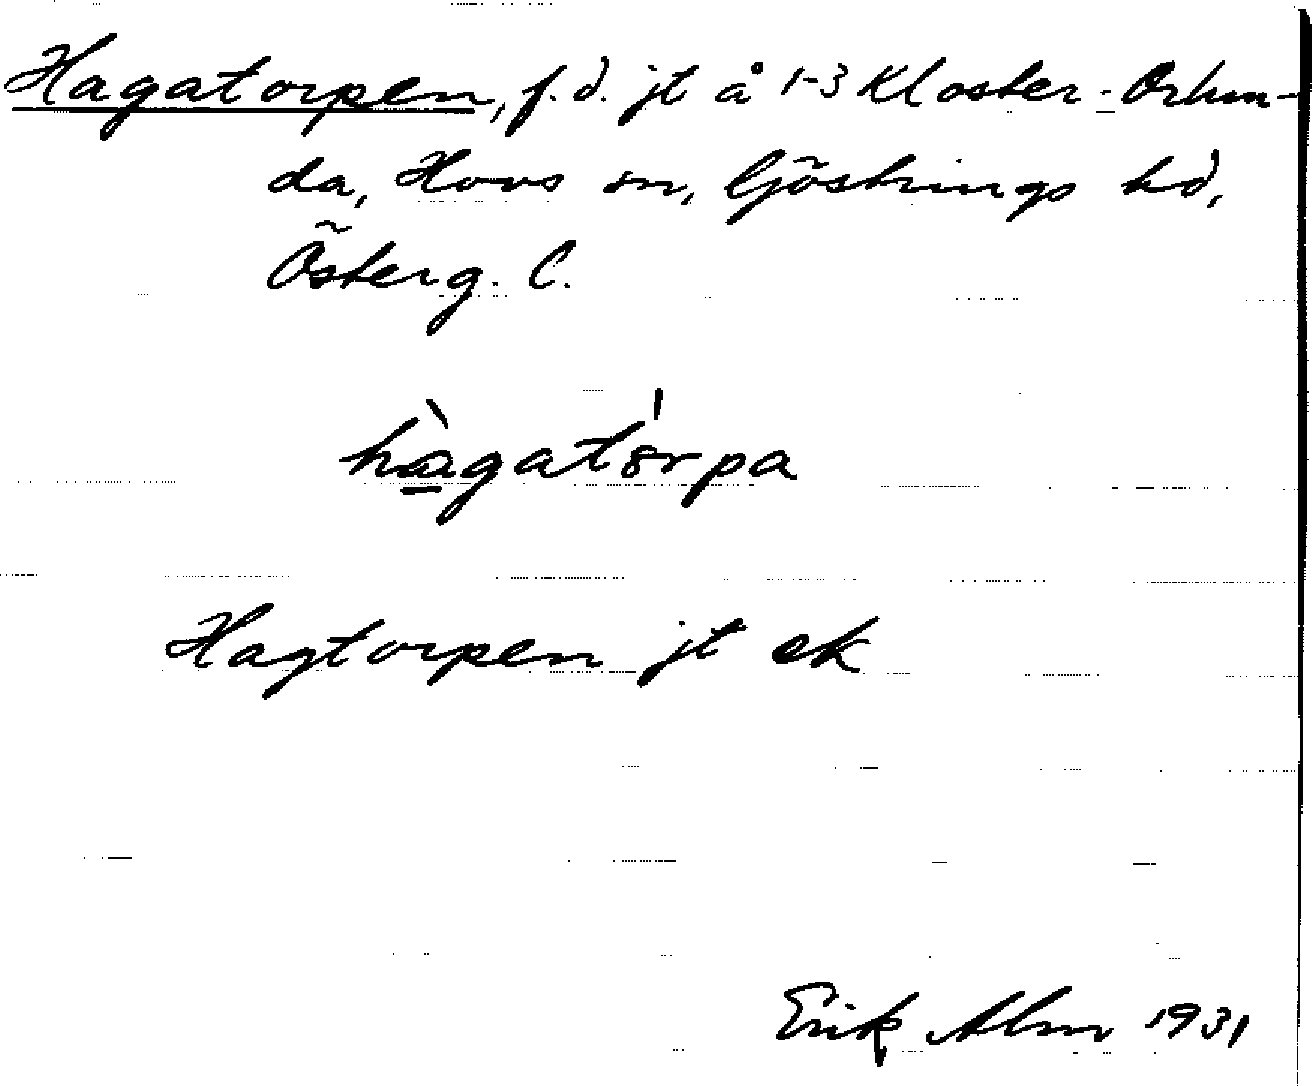 Hagatorpen, f.d. jt å 1-3 Kloster-Orlun-
da, Hovs sn, Göstrings hd,
Österg. l.
hàgatȯ́rpa
Hagtorpen jt ek
Erik Alm 1931